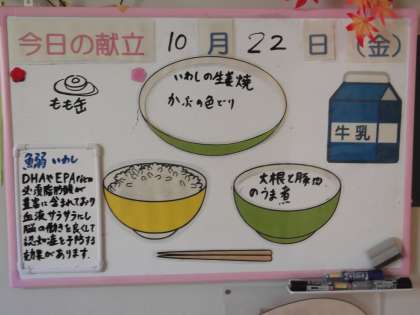 今日の献立 10月22日(金)
もも缶
いわしの生姜焼
かぶの色どり
牛乳
大根と豚肉
のうま煮
鰯 いわし
DHAやEPAなどの
必須脂肪酸が
豊富に含まれており
血液サラサラにし
脳の働きを良くして
認知症を予防する
効果があります。